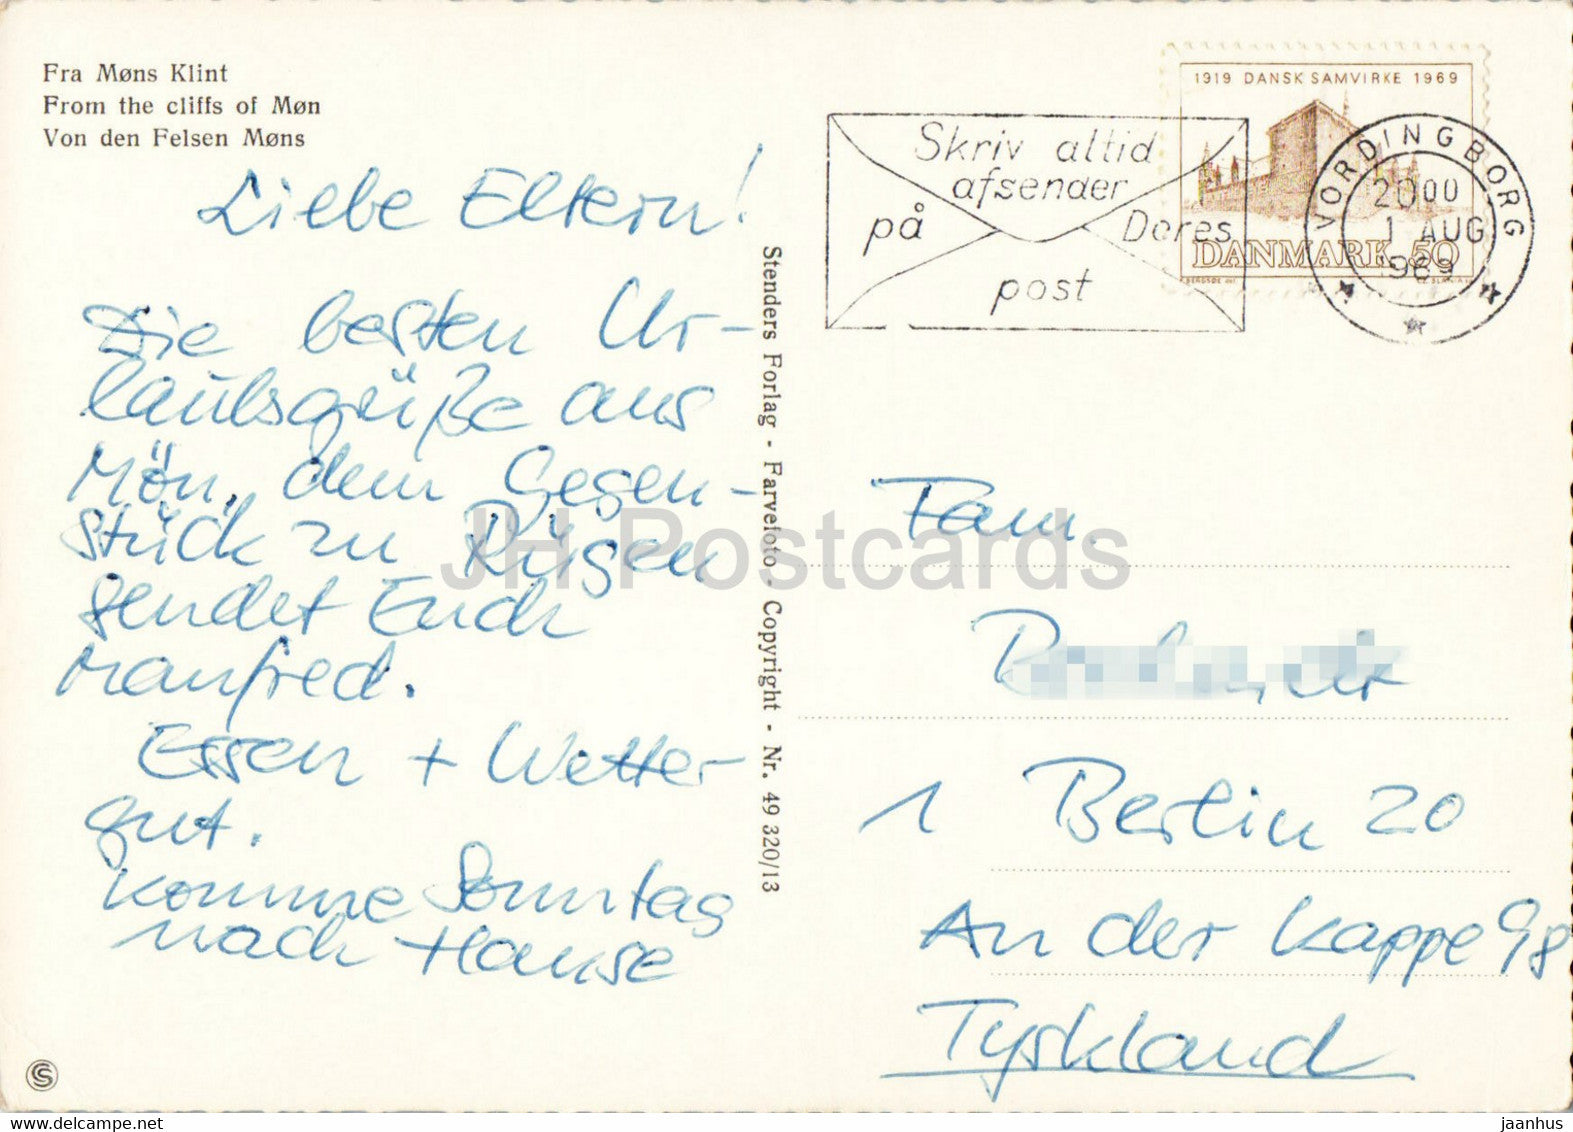 Fra Møns Klint
From the cliffs of Møn
Von den Felsen Møns
Liebe Eltern!
Die besten Ur-
laubsgrüße aus
Mön, dem Gegen-
stück zu Rügen
sendet Euch
Manfred.
Essen + Wetter
gut.
Komme Sonntag
nach Hause
Stenders Forlag - Farvefoto - Copyright - Nr. 49 320/13
Skriv altid
afsender
på Deres
post
1919 DANSK SAMVIRKE 1969
DANMARK 50
VORDINGBORG
2000
1 AUG
1969
Fam.
1 Berlin 20
An der Kappe 98
Tyskland
JH Postcards
S
delcampe.net
jaanhus